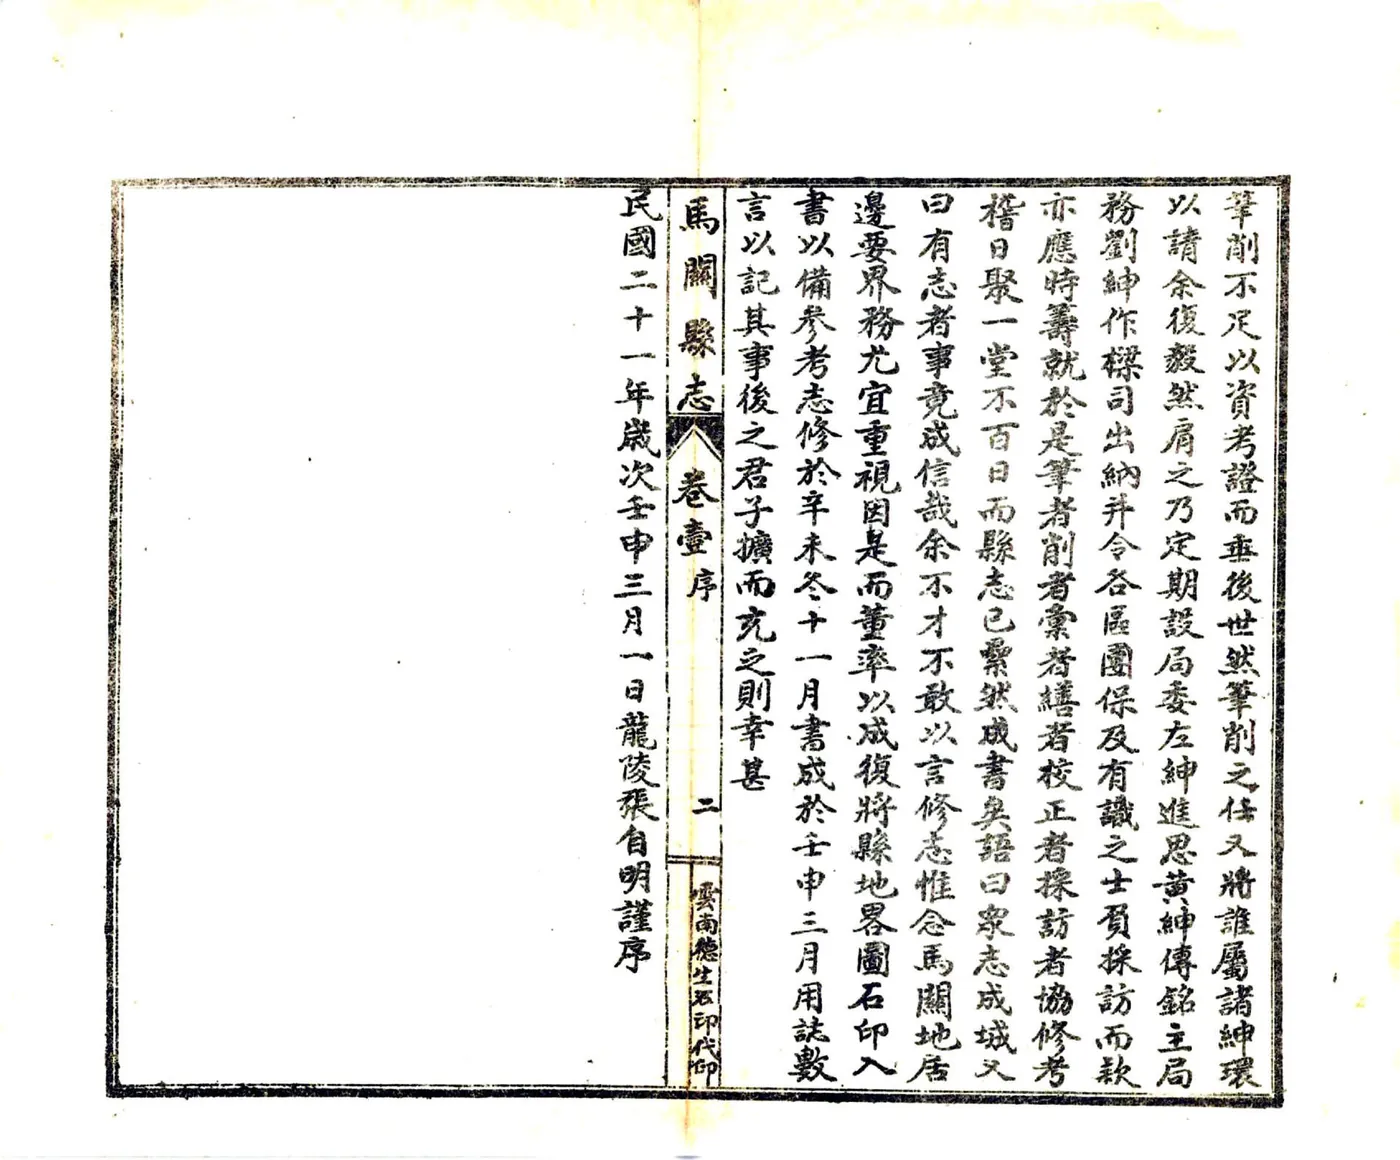 筆削不足以資考證而垂後世然筆削之任又將誰屬諸紳環
以請余復毅然肩之乃定期設局委左紳進思黃紳傳銘主局
務劉紳作樑司出納并令各區團保及有識之士負採訪而款
亦應時籌就於是筆者削者彙者繕者校正者採訪者協修考
稽日聚一堂不百日而縣志已纍然成書矣語曰眾志成城又
曰有志者事竟成信哉余不才不敢以言修志惟念馬關地居
邊要界務尤宜重視因是而董率以成復將縣地畧圖石印入
書以備參考志修於辛未冬十一月書成於壬申三月用誌數
言以記其事後之君子擴而充之則幸甚
馬關縣志
卷壹 序
二
雲南德生石印代印
民國二十一年歲次壬申三月一日龍陵張自明謹序